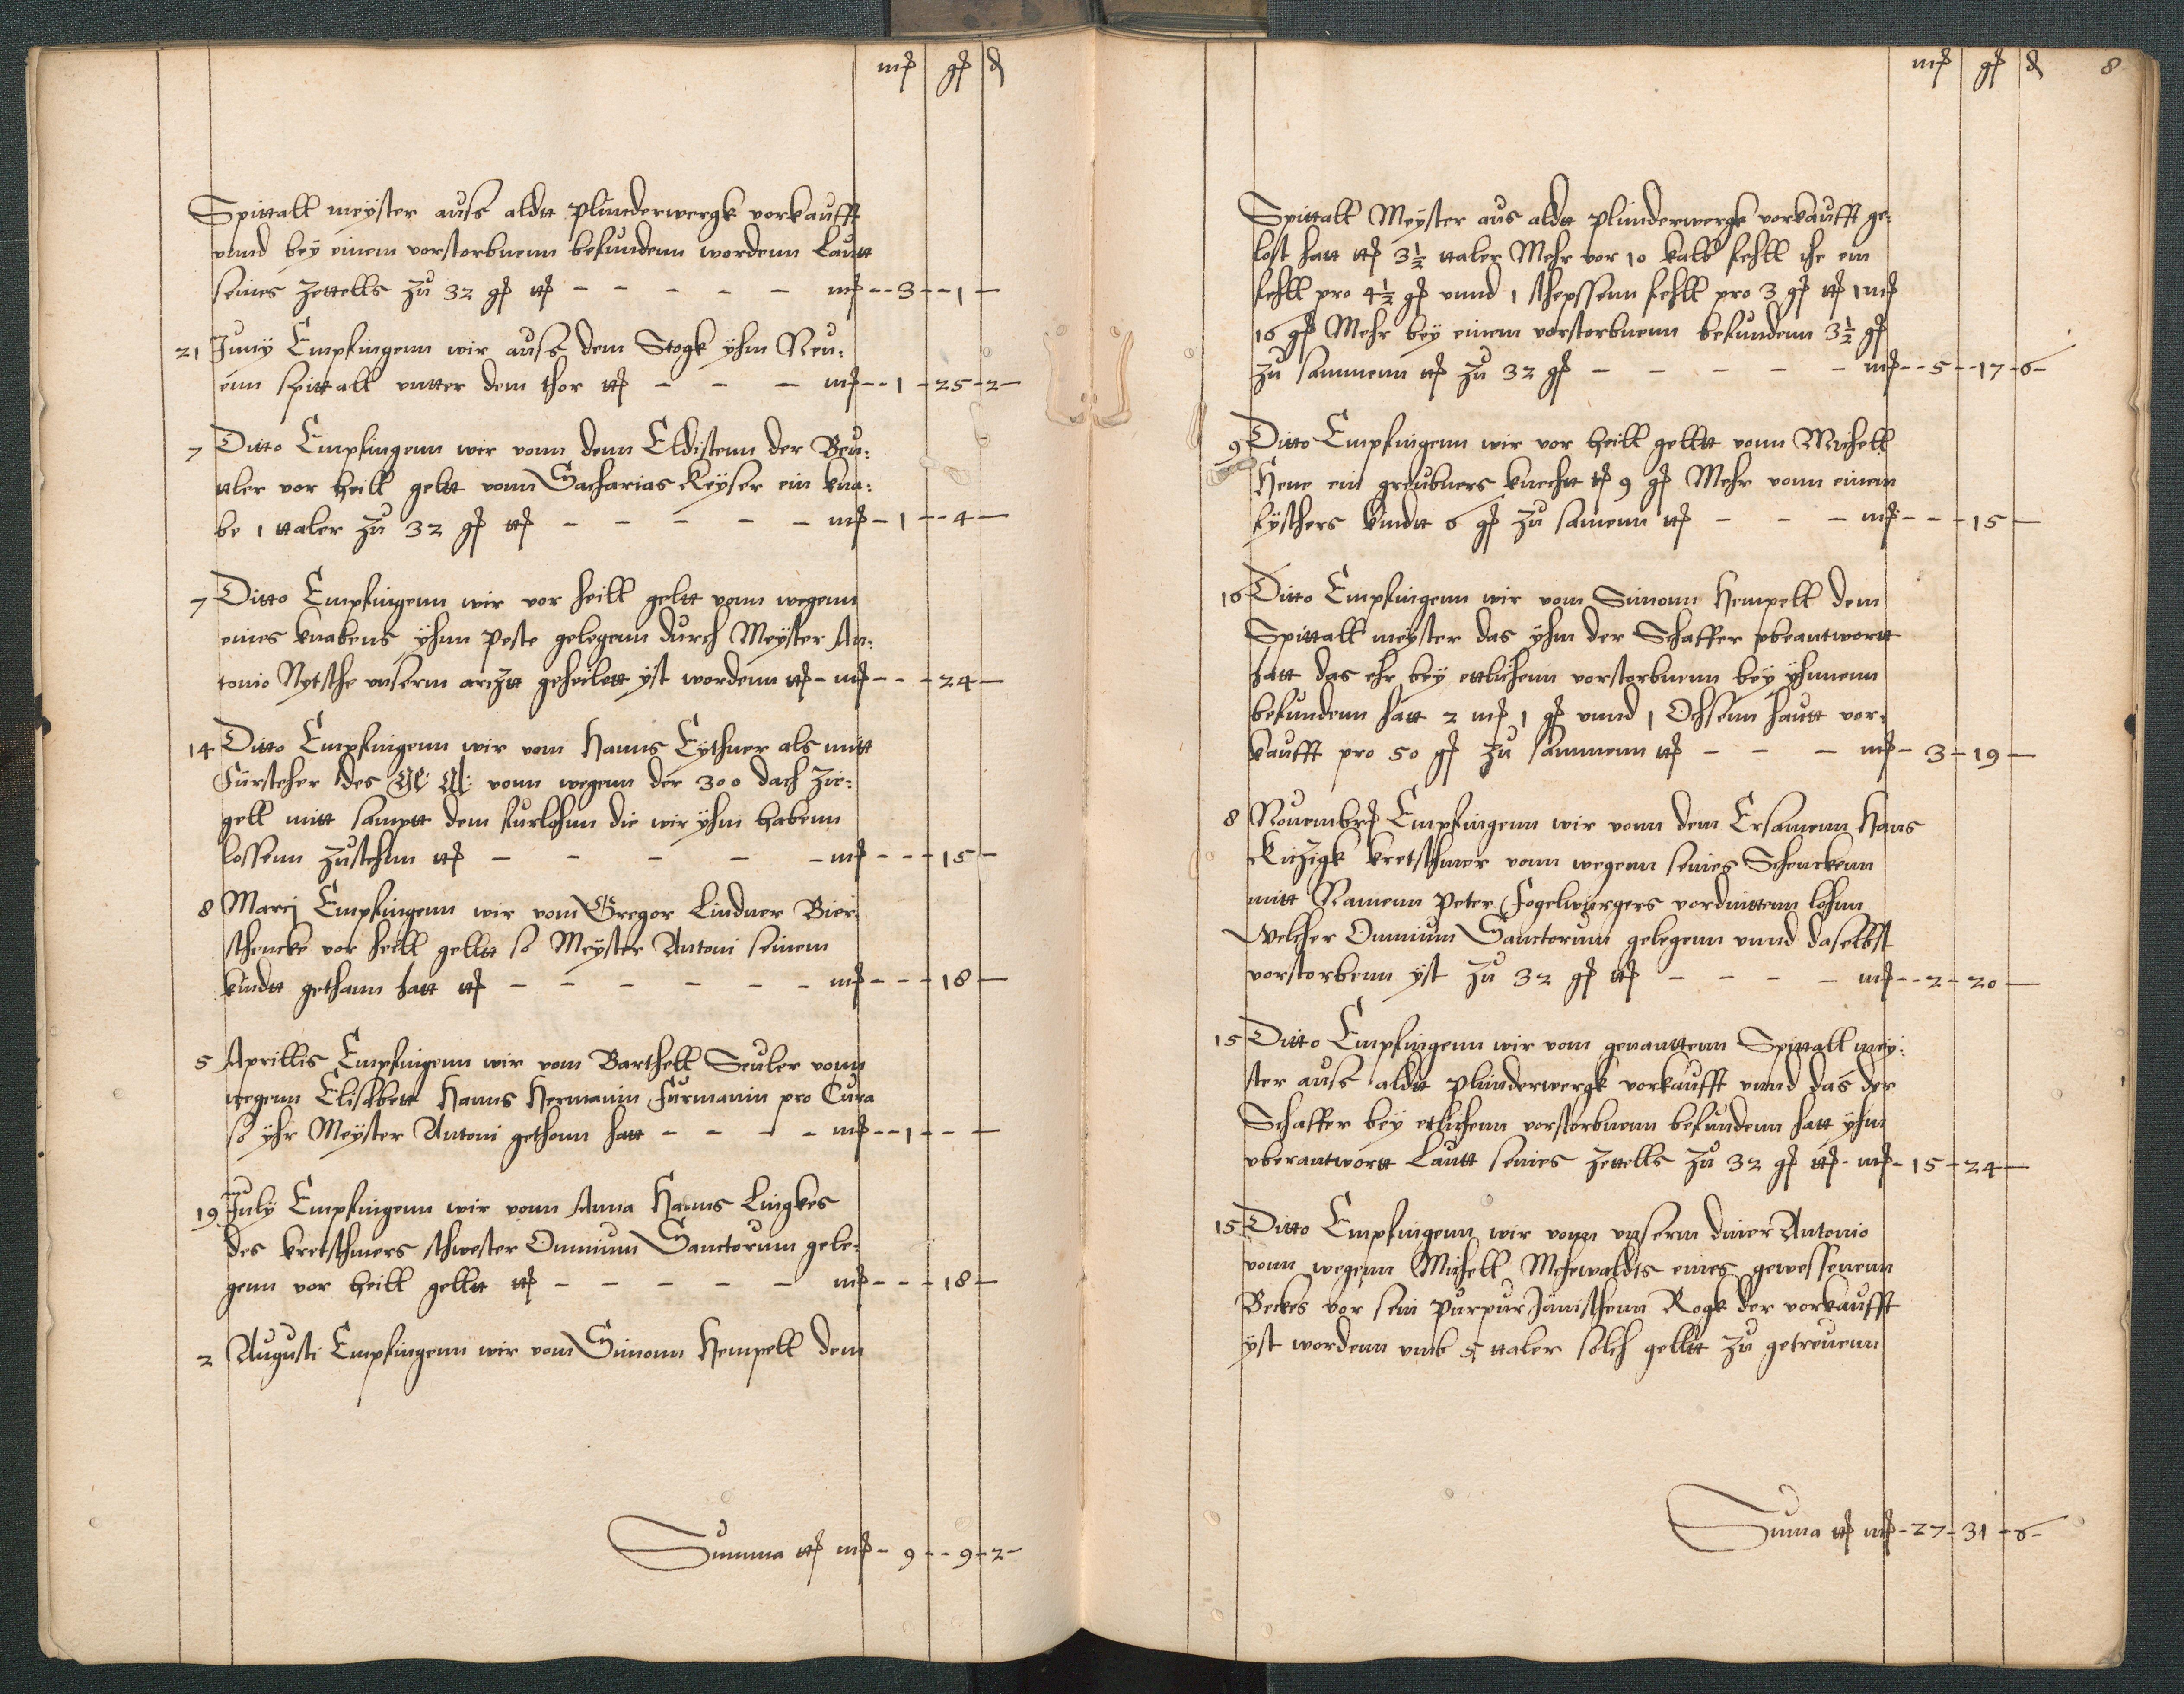 mß gß d
Spittall meyster auss aldtt plünderwergk vorkaufft
vnnd bey einem vorstorbnenn befundenn wordenn Lautt
seines zettells zu 32 gß ttß - - - - - mß - - 3 - - 1 -
21 Juny Empfingenn wir auss dem Stogk yhm Neu:
enn spittall vntter dem thor ttß - - - mß - - 1 - 25 - 2 -
7 Ditto Empfingenn wir vonn denn Eldistenn der Beu:
ttler vor heill geltt vonn Sacharias Keyser ein kna:
be 1 ttaler zu 32 gß ttß - - - - - mß - 1 - - 4 -
7 Ditto Empfingenn wir vor heill geltt vonn wegenn
eines knabens yhnn peste gelegenn durch Meyster An:
tonio Nytsche vnserm arcztt geheilett yst wordenn ttß - mß - - - 24 -
14 Ditto Empfingenn wir vom Hanns Eythner als mitt
Fürsteher des vonn wegenn der 300 dach zie:
gell mitt samptt dem furlohnn die wir yhm habenn
lossenn zustehnn ttß - - - - - mß - - - 15 -
8 Marcj Empfingenn wir vom Gregor Lindner Bier
schencke vor heill gelltt so Meyster Antoni seinem
kindtt gethann hatt ttß - - - - - - mß - - - 18 -
5 Aprillis Empfingenn wir vom Barthell Seuler vonn
wegenn Elisabett Hanns Hermanin Furmanin pro Cura
so yhr Meyster Antoni gethonn hatt - - - - mß - - 1 - - -
19 July Empfingenn wir vonn Anna Hanns Lingkes
des kretschmers schwester Omnium Sanctorum gele:
genn vor heill gelltt ttß - - - - - mß - - - 18 -
2 Augusti Empfingenn wir vom Simonn Hempell dem
Summa ttß mß - 9 - - 9 - 2 -
mß gß d 8
Spittall Meyster aus aldtt plunderwergk vorkaufft ge:
lost hatt ttß 3½ ttaler Mehr vor 10 kalb fehll ihe ein
fehll pro 4½ gß vnnd 1 schepssenn fehll pro 3 gß ttß 1 mß
16 gß Mehr bey einem vorstorbnenn befundenn 3½ gß
zu sammenn ttß zu 32 gß - - - - - mß - - 5 - - 17 - 6 -
9 Ditto Empfingenn wir vor heill gelltt vonn Michell
Hene ein greubners knechtt ttß 9 gß Mehr vonn einem
fyschers kindtt 6 gß zu samenn ttß - - - mß - - - 15 -
16 Ditto Empfingenn wir vom Simonn Hempell dem
Spittall meyster das yhm der Schaffer vbeantwortt
hatt das ehr bey ettlichenn vorstorbnenn bey yhnnenn
befundenn hatt 2 mß 1 gß vnnd 1 Ochsenn hautt vor:
kaufft pro 50 gß zu sammenn ttß - - - mß - 3 - 19 -
8 Nouembrß Empfingenn wir vonn dem Ersamenn Hans
Kiczigk kretschmer vonn wegenn seines Schenckenn
mitt Namenn Peter Fogelwürgers vordinttenn lohnn
Welcher Omnium Sanctorum gelegenn vnnd daselbst
vorstorbenn yst zu 32 gß ttß - - - - mß - - 2 - 20 -
15 Ditto Empfingenn wir vom genanttenn Spittall mey:
ster auss aldtt plünderwergk vorkaufft vnnd das der
Schaffer bey etlichenn vorstorbnenn befundenn hatt yhm
vberantwortt Lautt seines zettells zu 32 gß ttß - mß - 15 - 24 -
15 Ditto Empfingenn wir vonn vnserm diner Antonio
vonn wegenn Michell Mehewaldts eines gewessenenn
Beckes vor sein purpur Jänischenn Rogk der vorkaufft
yst wordenn vmb 5 ttaler solch gelltt zu getreuenn
Suma ttß mß - 27 - 31 - 6 -